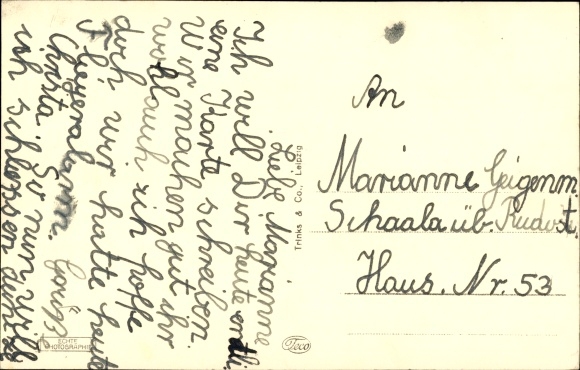 Liebe Marianne
Ich will Dir heute endli.
eine Karte schreiben.
Wir machen gut ihr
wohl auch ich hoffe
doch wir hatte heute
Fl
Christa. So nun will
ich schlossen den
An
Marianne Geigenm
Schaala üb. Rudolst.
Haus. Nr. 53
Trinks & Co., Leipzig
ECHTE
PHOTOGRAPHIE
Teco